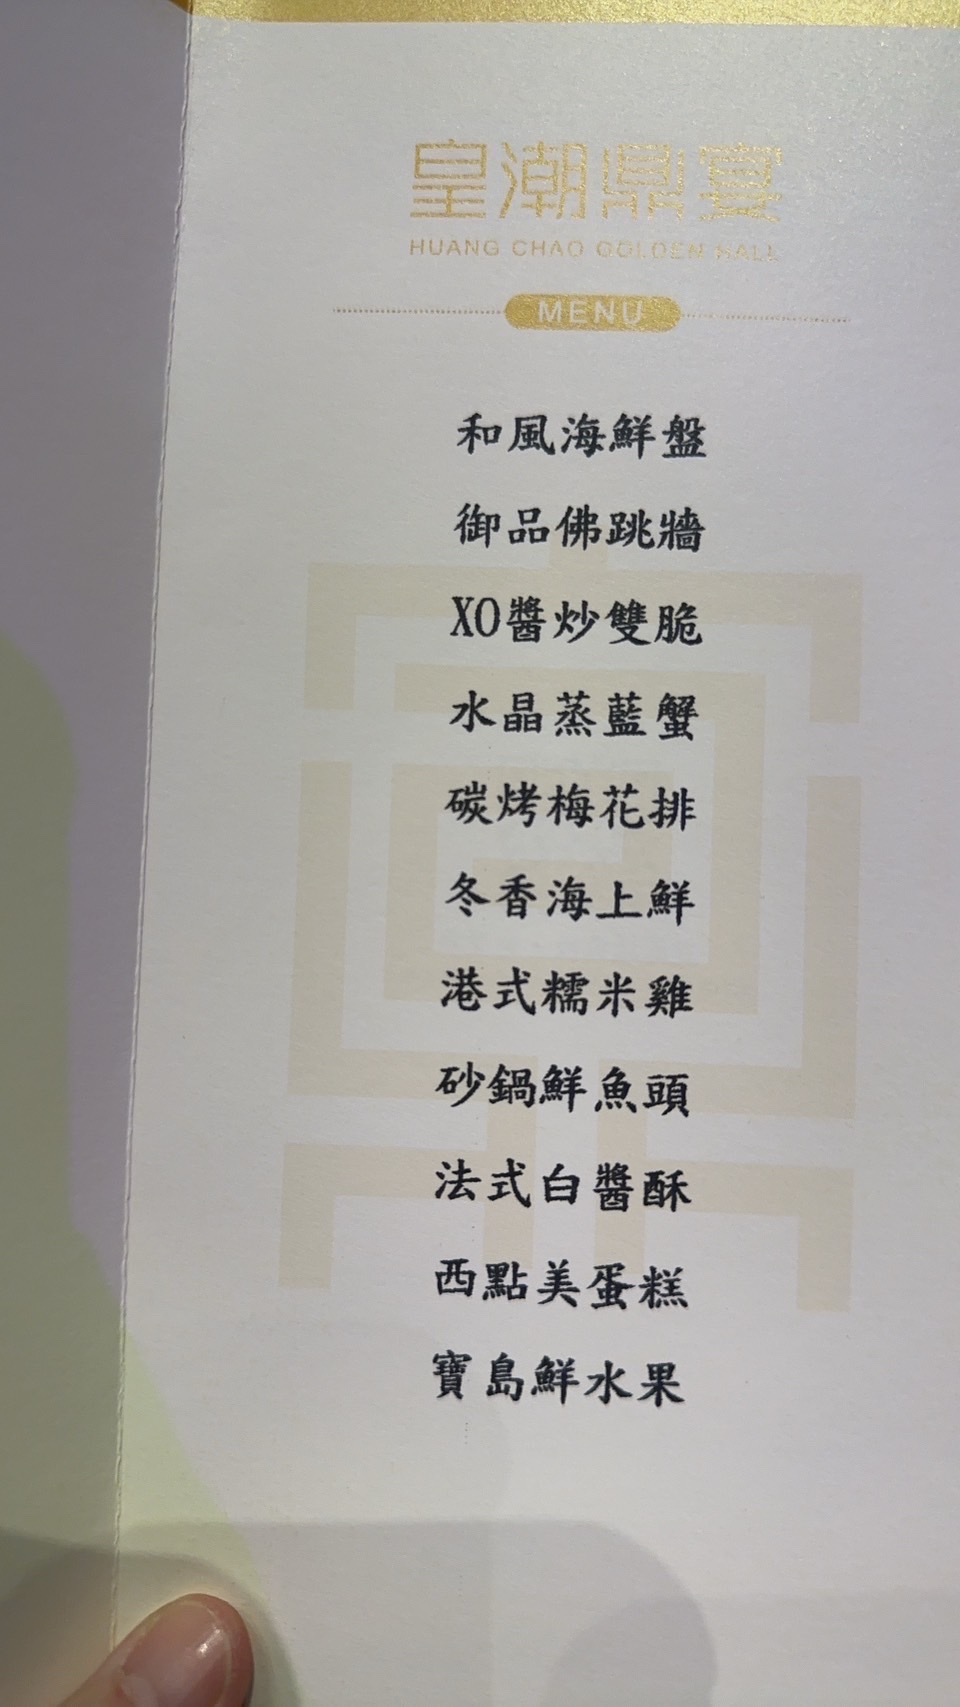 皇潮鼎宴
HUANG CHAO GOLDEN HALL
MENU
和風海鮮盤
御品佛跳牆
XO醬炒雙脆
水晶蒸藍蟹
碳烤梅花排
冬香海上鮮
港式糯米雞
砂鍋鮮魚頭
法式白醬酥
西點美蛋糕
寶島鮮水果